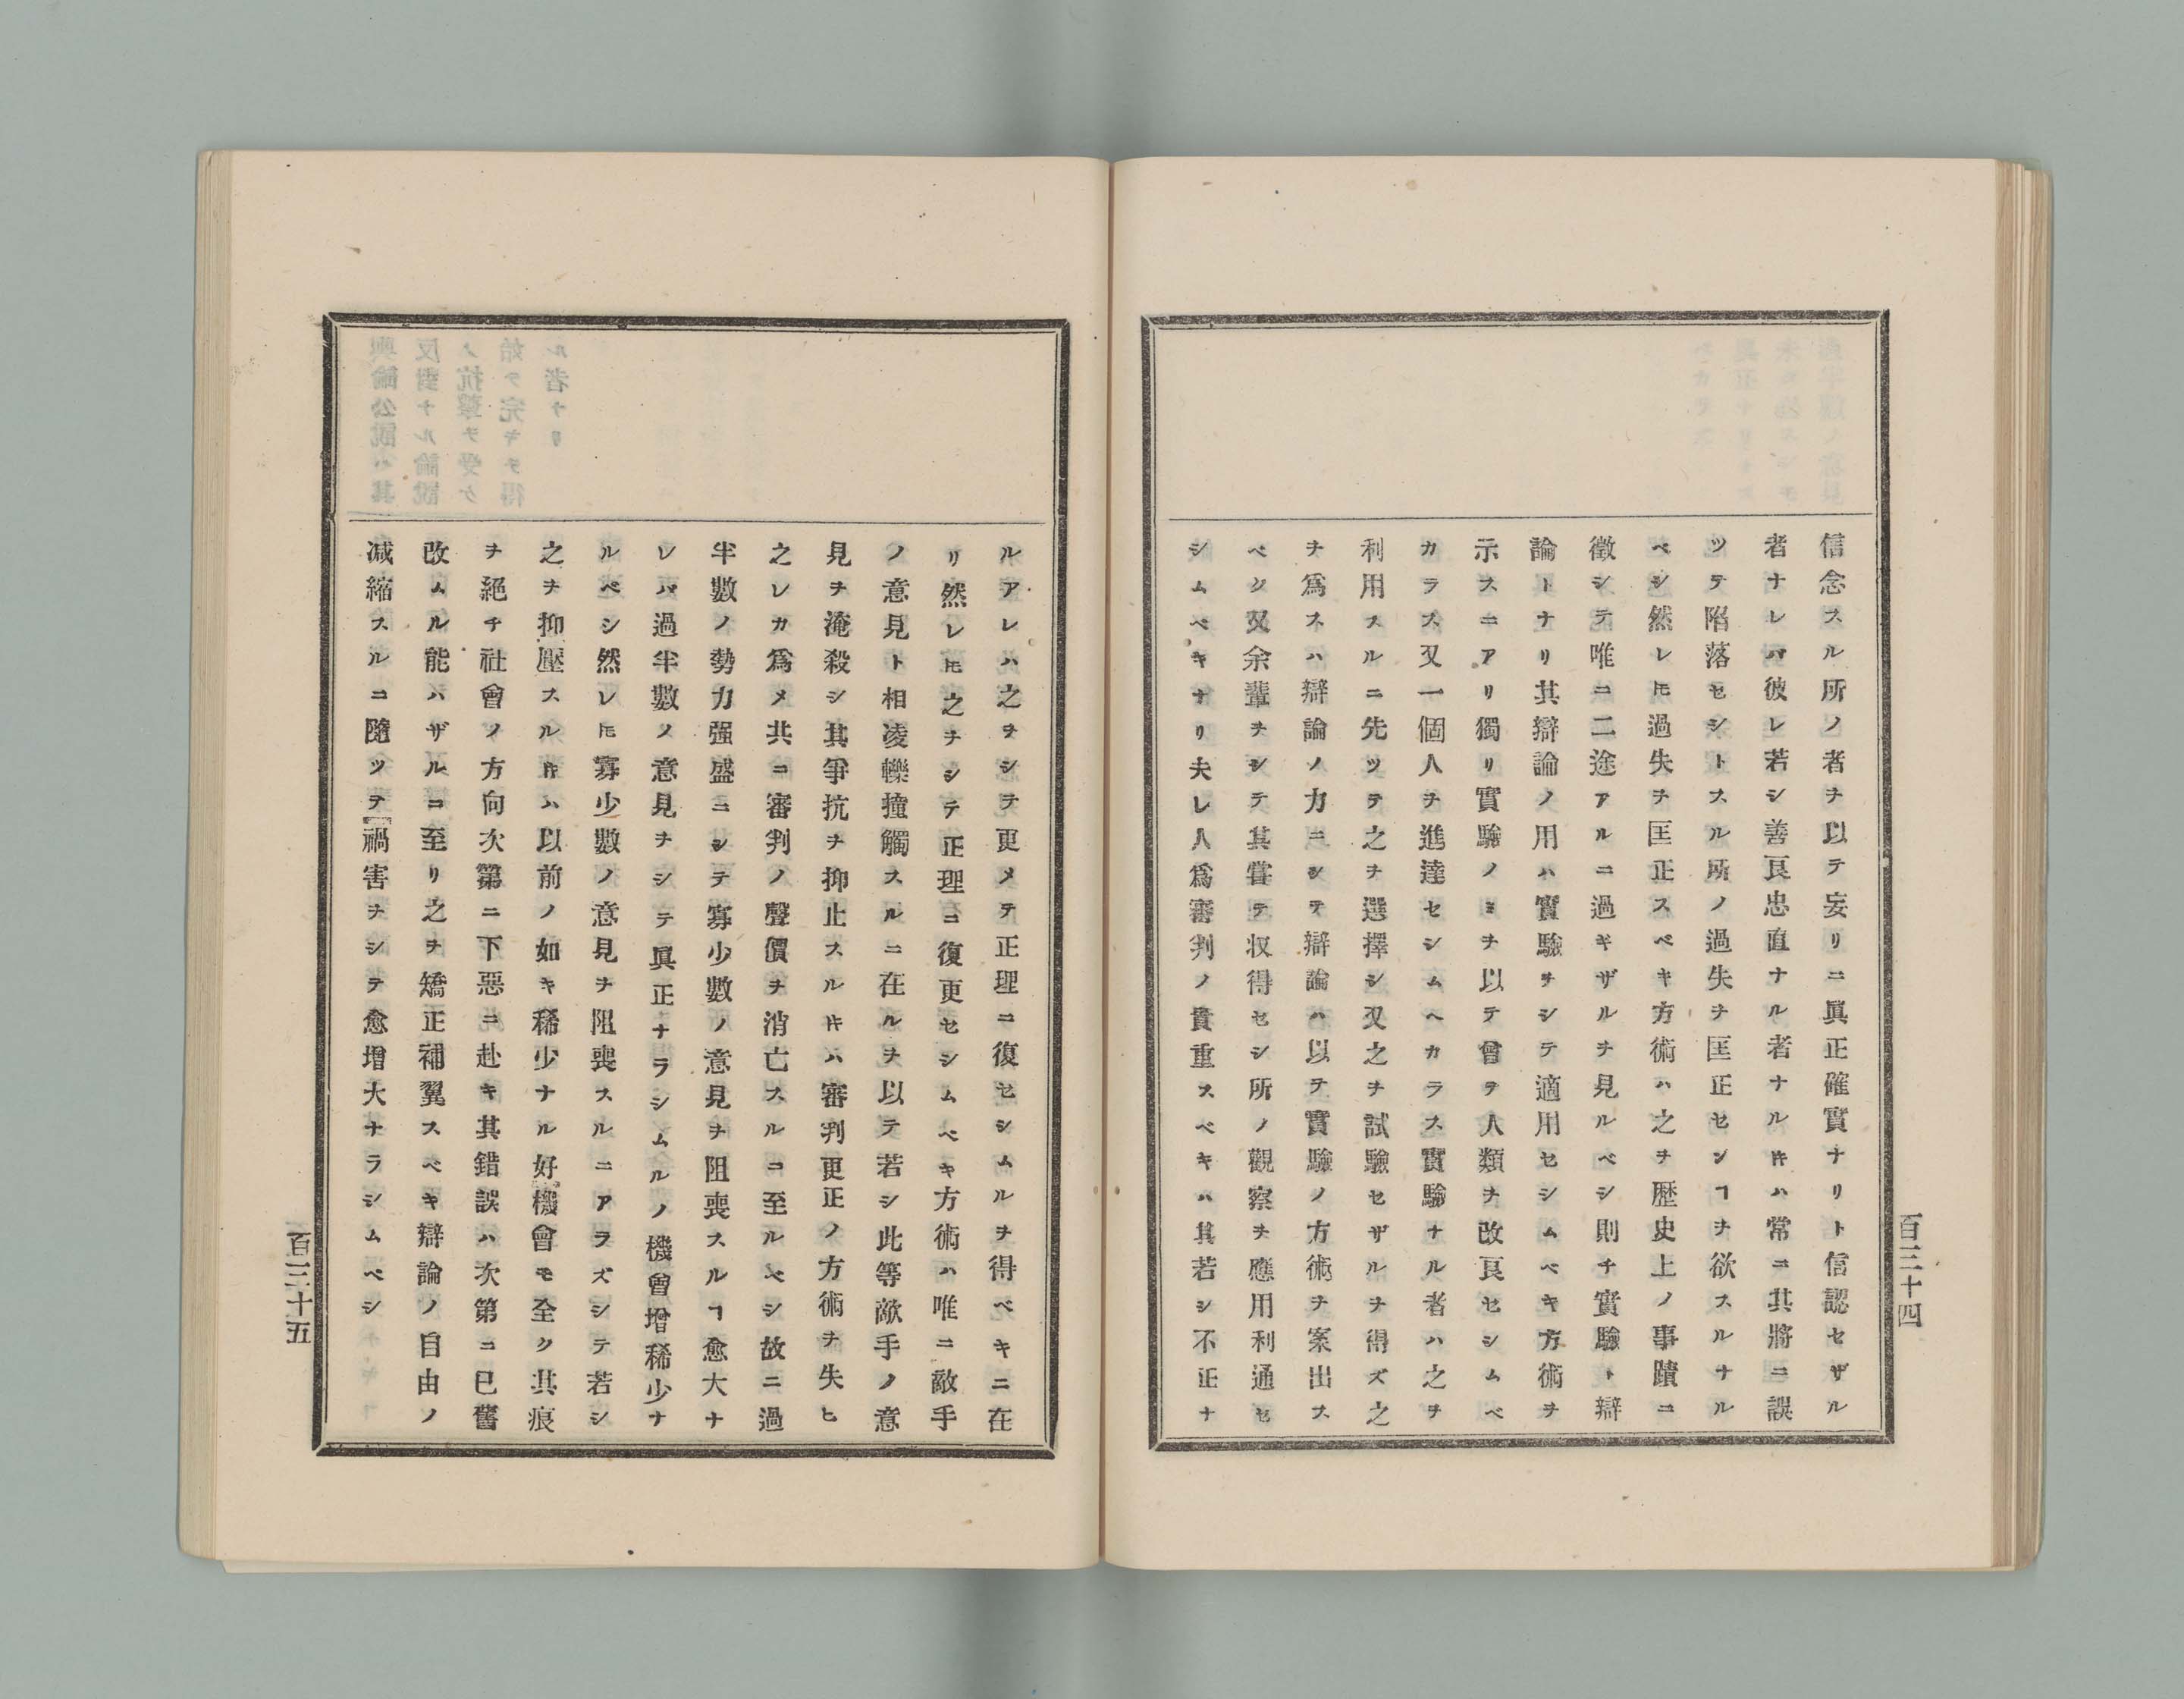 信念スル所ノ者ヲ以テ妄リニ眞正確實ナリト信認セザル
者ナレバ彼レ若シ善良忠直ナル者ナルトキハ常ニ其將ニ誤
ツテ陷落セントスル所ノ過失ヲ匡正センヿヲ欲スルナル
ベシ然レ𪜈過失ヲ匡正スベキ方術ハ之ヲ歴史上ノ事蹟ニ
徵シテ唯ニ二途アルニ過ギザルヲ見ルベシ則チ實驗ト辯
論トナリ其辯論ノ用ハ實驗ヲシテ適用セシムベキ方術ヲ
示スニアリ獨リ實驗ノミヲ以テ曾テ人類ヲ改良セシムベ
カラス又一個人ヲ進達セシムヘカラス實驗ナル者ハ之ヲ
利用スルニ先ツテ之ヲ選擇シ又之ヲ試驗セザルヲ得ズ之
ヲ爲スハ辯論ノ力ニシテ辯論ハ以テ實驗ノ方術ヲ案出ス
ベク又余輩ヲシテ其嘗テ収得セシ所ノ觀察ヲ應用利通セ
シムベキナリ夫レ人爲審判ノ貴重スベキハ其若シ不正ナ
百三十四
ルアレハ之ヲシテ更メテ正理ニ復セシムルヲ得ベキニ在
リ然レ𪜈之ヲシテ正理ニ復更セシムベキ方術ハ唯ニ敵手
ノ意見ト相凌轢撞觸スルニ在ルヲ以テ若シ此等敵手ノ意
見ヲ淹殺シ其爭抗ヲ抑止スルトキハ審判更正ノ方術ヲ失ヒ
之レカ爲メ共ニ審判ノ聲價ヲ消亡スルニ至ルベシ故ニ過
半數ノ勢力强盛ニシテ寡少數ノ意見ヲ阻喪スルヿ愈大ナ
レバ過半數ノ意見ヲシテ眞正ナラシムルノ機會增稀少ナ
ルベシ然レ𪜈寡少數ノ意見ヲ阻喪スルニアラズシテ若シ
之ヲ抑壓スルトキハ以前ノ如キ稀少ナル好機會モ全ク其痕
ヲ絕チ社會ノ方向次第ニ下惡ニ赴キ其錯誤ハ次第ニ已舊
改ムル能ハザルニ至リ之ヲ矯正補翼スベキ辯論ノ自由ノ
減縮スルニ隨ツテ禍害ヲシテ愈增大ナラシムベシ
百三十五